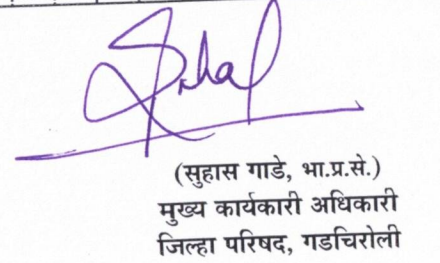 (सुहास गाडे, भा.प्र.से.)
मुख्य कार्यकारी अधिकारी
जिल्हा परिषद, गडचिरोली